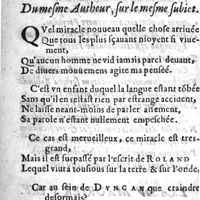 Du mesme Autheur, sur le mesme subiet.
QVel miracle nouveau quelle chose arriuée
Que tous les plus sçauans nioyent si viue-
ment,
Qu'aucun homme ne vid iamais parei deuant,
De diuers mouuemens agite ma pensée.
C'est vn enfant duquel la langue estant tõbée
Sans qu'il en restast rien par estrange accident,
Ne laisse neant-moins de parler aisement,
Sa parole n'estant nullement empeschée.
Ce cas est merueilleux, ce miracle est tres-
grand,
Mais il est surpassé par l'escrit de ROLAND
Lequel viura tousiours sur la terre & sur l'onde,
Car au sein de DVNCAN que craindre
desormais?